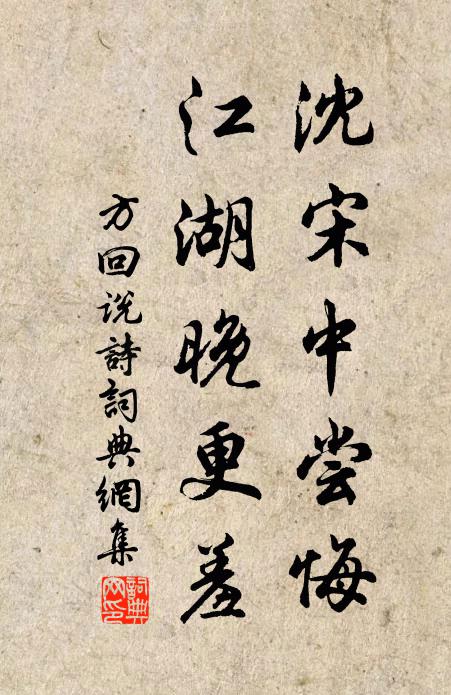 沈宋中尝悔
江湖晚更羞
方回说詩詞典網集
詞典網印